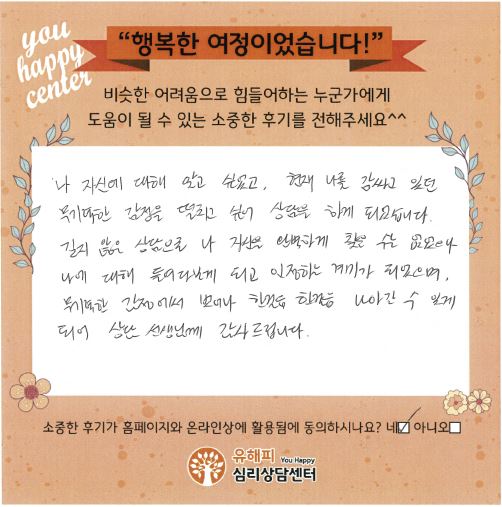 you
happy
center
“행복한 여정이었습니다!”
비슷한 어려움으로 힘들어하는 누군가에게
도움이 될 수 있는 소중한 후기를 전해주세요^^
나 자신에 대해 알고 싶었고, 현재 나를 감싸고 있던
무기력한 감정을 떨치고 싶어 상담을 하게 되었습니다.
길지 않은 상담으로 나 자신을 완벽하게 찾을 수는 없었으나
나에 대해 들여다보게 되고 인정하는 계기가 되었으며,
무기력한 감정에서 벗어나 한걸음 한걸음 나아갈 수 있게
되어 상담 선생님께 감사드립니다.
소중한 후기가 홈페이지와 온라인상에 활용됨에 동의하시나요? 네☑ 아니오☐
유해피 You Happy
심리상담센터